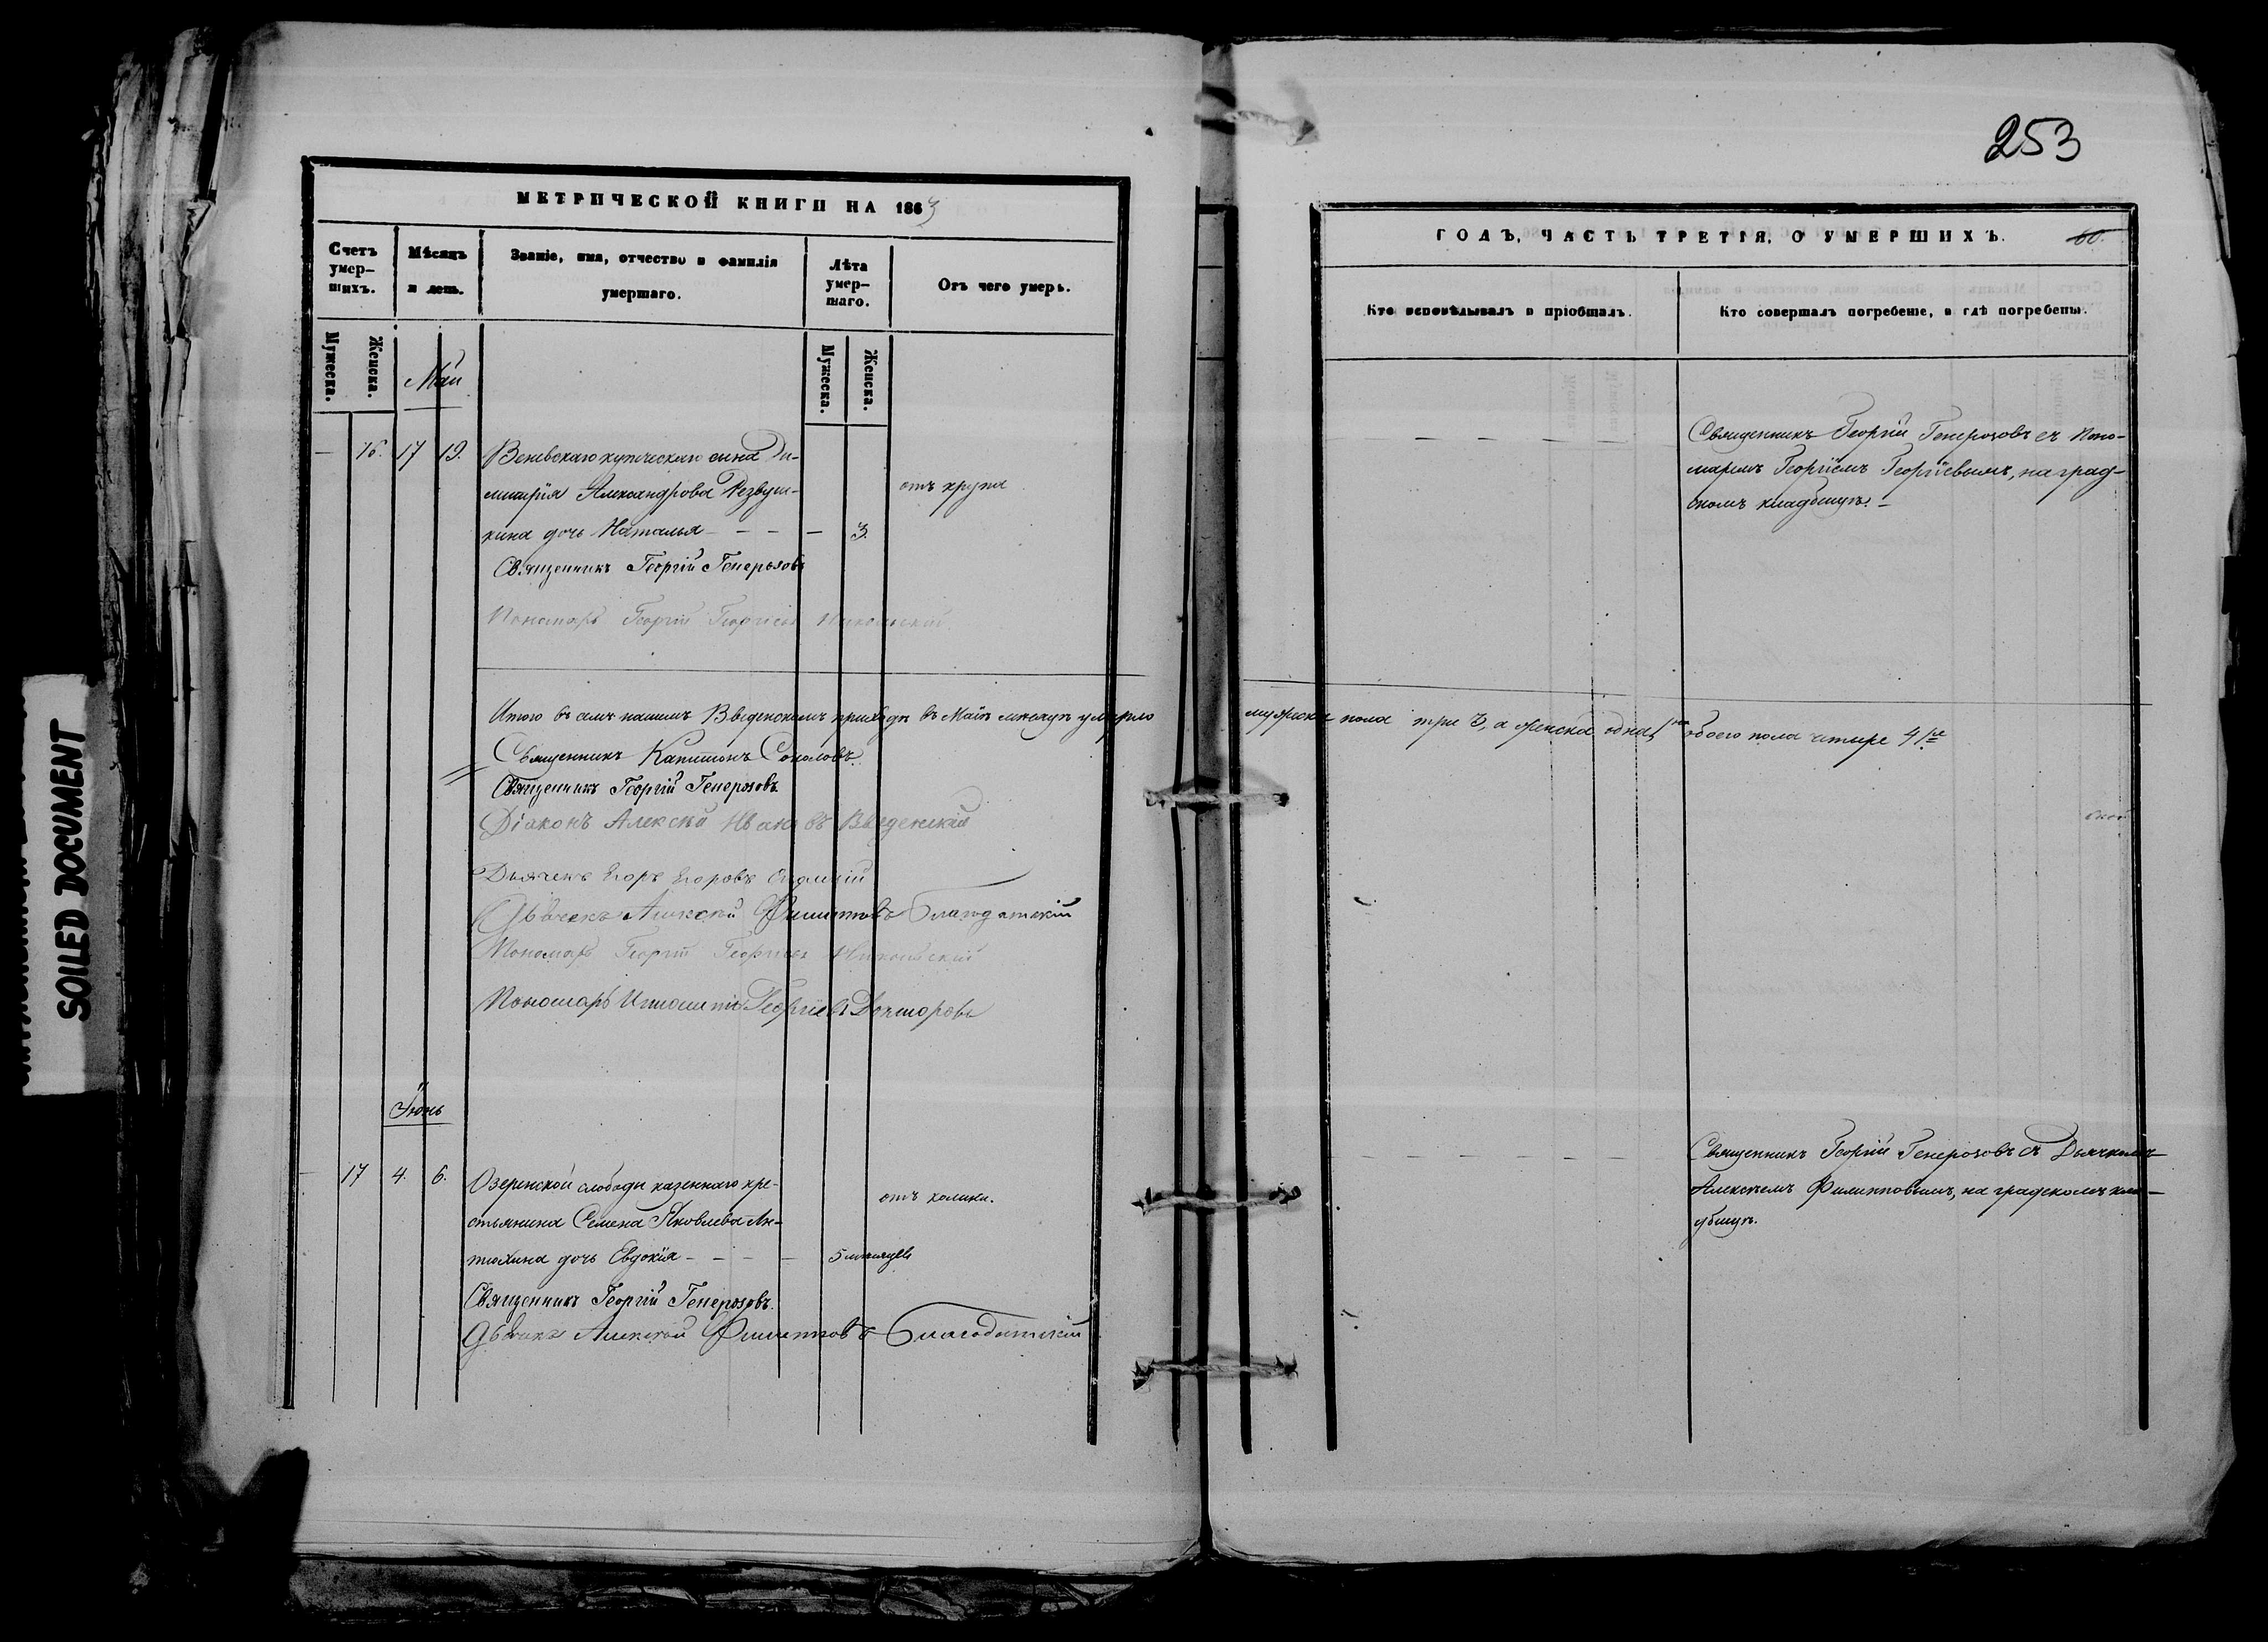 253
МЕТРИЧЕСКОЙ КНИГИ НА 1863
ГОДЪ, ЧАСТЬ ТРЕТІЯ, О УМЕРШИХЪ.
60.
Счетъ умер-
шихъ.
Мѣсяцъ
и день.
Званіе, имя, отчество и фамилія
умершаго.
Лѣта
умер-
шаго.
Отъ чего умеръ.
Кто исповѣдывалъ и пріобщалъ.
Кто совершалъ погребеніе, и гдѣ погребены.
Мужеска.
Женска.
Май
Мужеска.
Женска.
— 16. 17 19. Веневскаго купеческаго сына Ди-
митрія Александрова Резвуш-
кина дочь Наталья - - - — 3.
отъ крупа
Священникъ Георгій Генерозовъ
Пономарь Георгій Георгіевъ Никольскій.
Священникъ Георгій Генерозовъ съ Поно-
маремъ Георгіемъ Георгіевымъ, на град-
скомъ кладбищѣ. -
Итого въ семъ нашемъ Введенскомъ приходѣ въ Маѣ мѣсяцѣ умерло
мужска пола три 3, а женска одна, обоего пола четыре 4ре
Священникъ Капитонъ Соколовъ.
Священникъ Георгій Генерозовъ
Діаконъ Алексѣй Ивановъ Введенскій
Дьячекъ Егоръ Егоровъ
Дьячекъ Алексѣй Филипповъ Благодатскій
Пономарь Георгій Георгіевъ Никольскій
Пономарь Георгіевъ Докторовъ
Іюнь
- 17 4. 6. Озеренской слободы казеннаго кре-
стьянина Семена Яковлева Ан-
тюхина дочь Евдокія - - - - 5 мѣсяцевъ
отъ колики.
Священникъ Георгій Генерозовъ.
Дьячекъ Алексѣй Филипповъ Благодатскій
Священникъ Георгій Генерозовъ съ Дьячкомъ
Алексѣемъ Филипповымъ, на градскомъ кла-
дбищѣ.
SOILED DOCUMENT